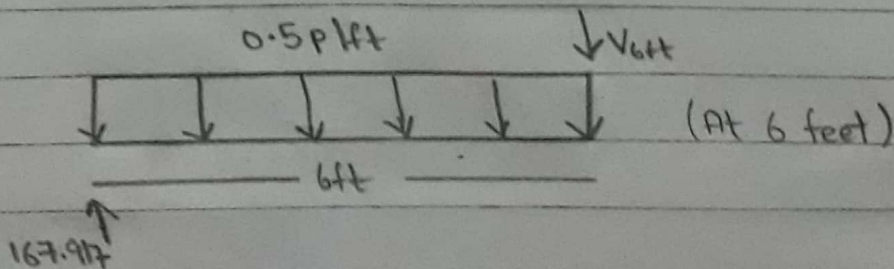 0.5plft V6ft
(At 6 feet)
6ft
167.917